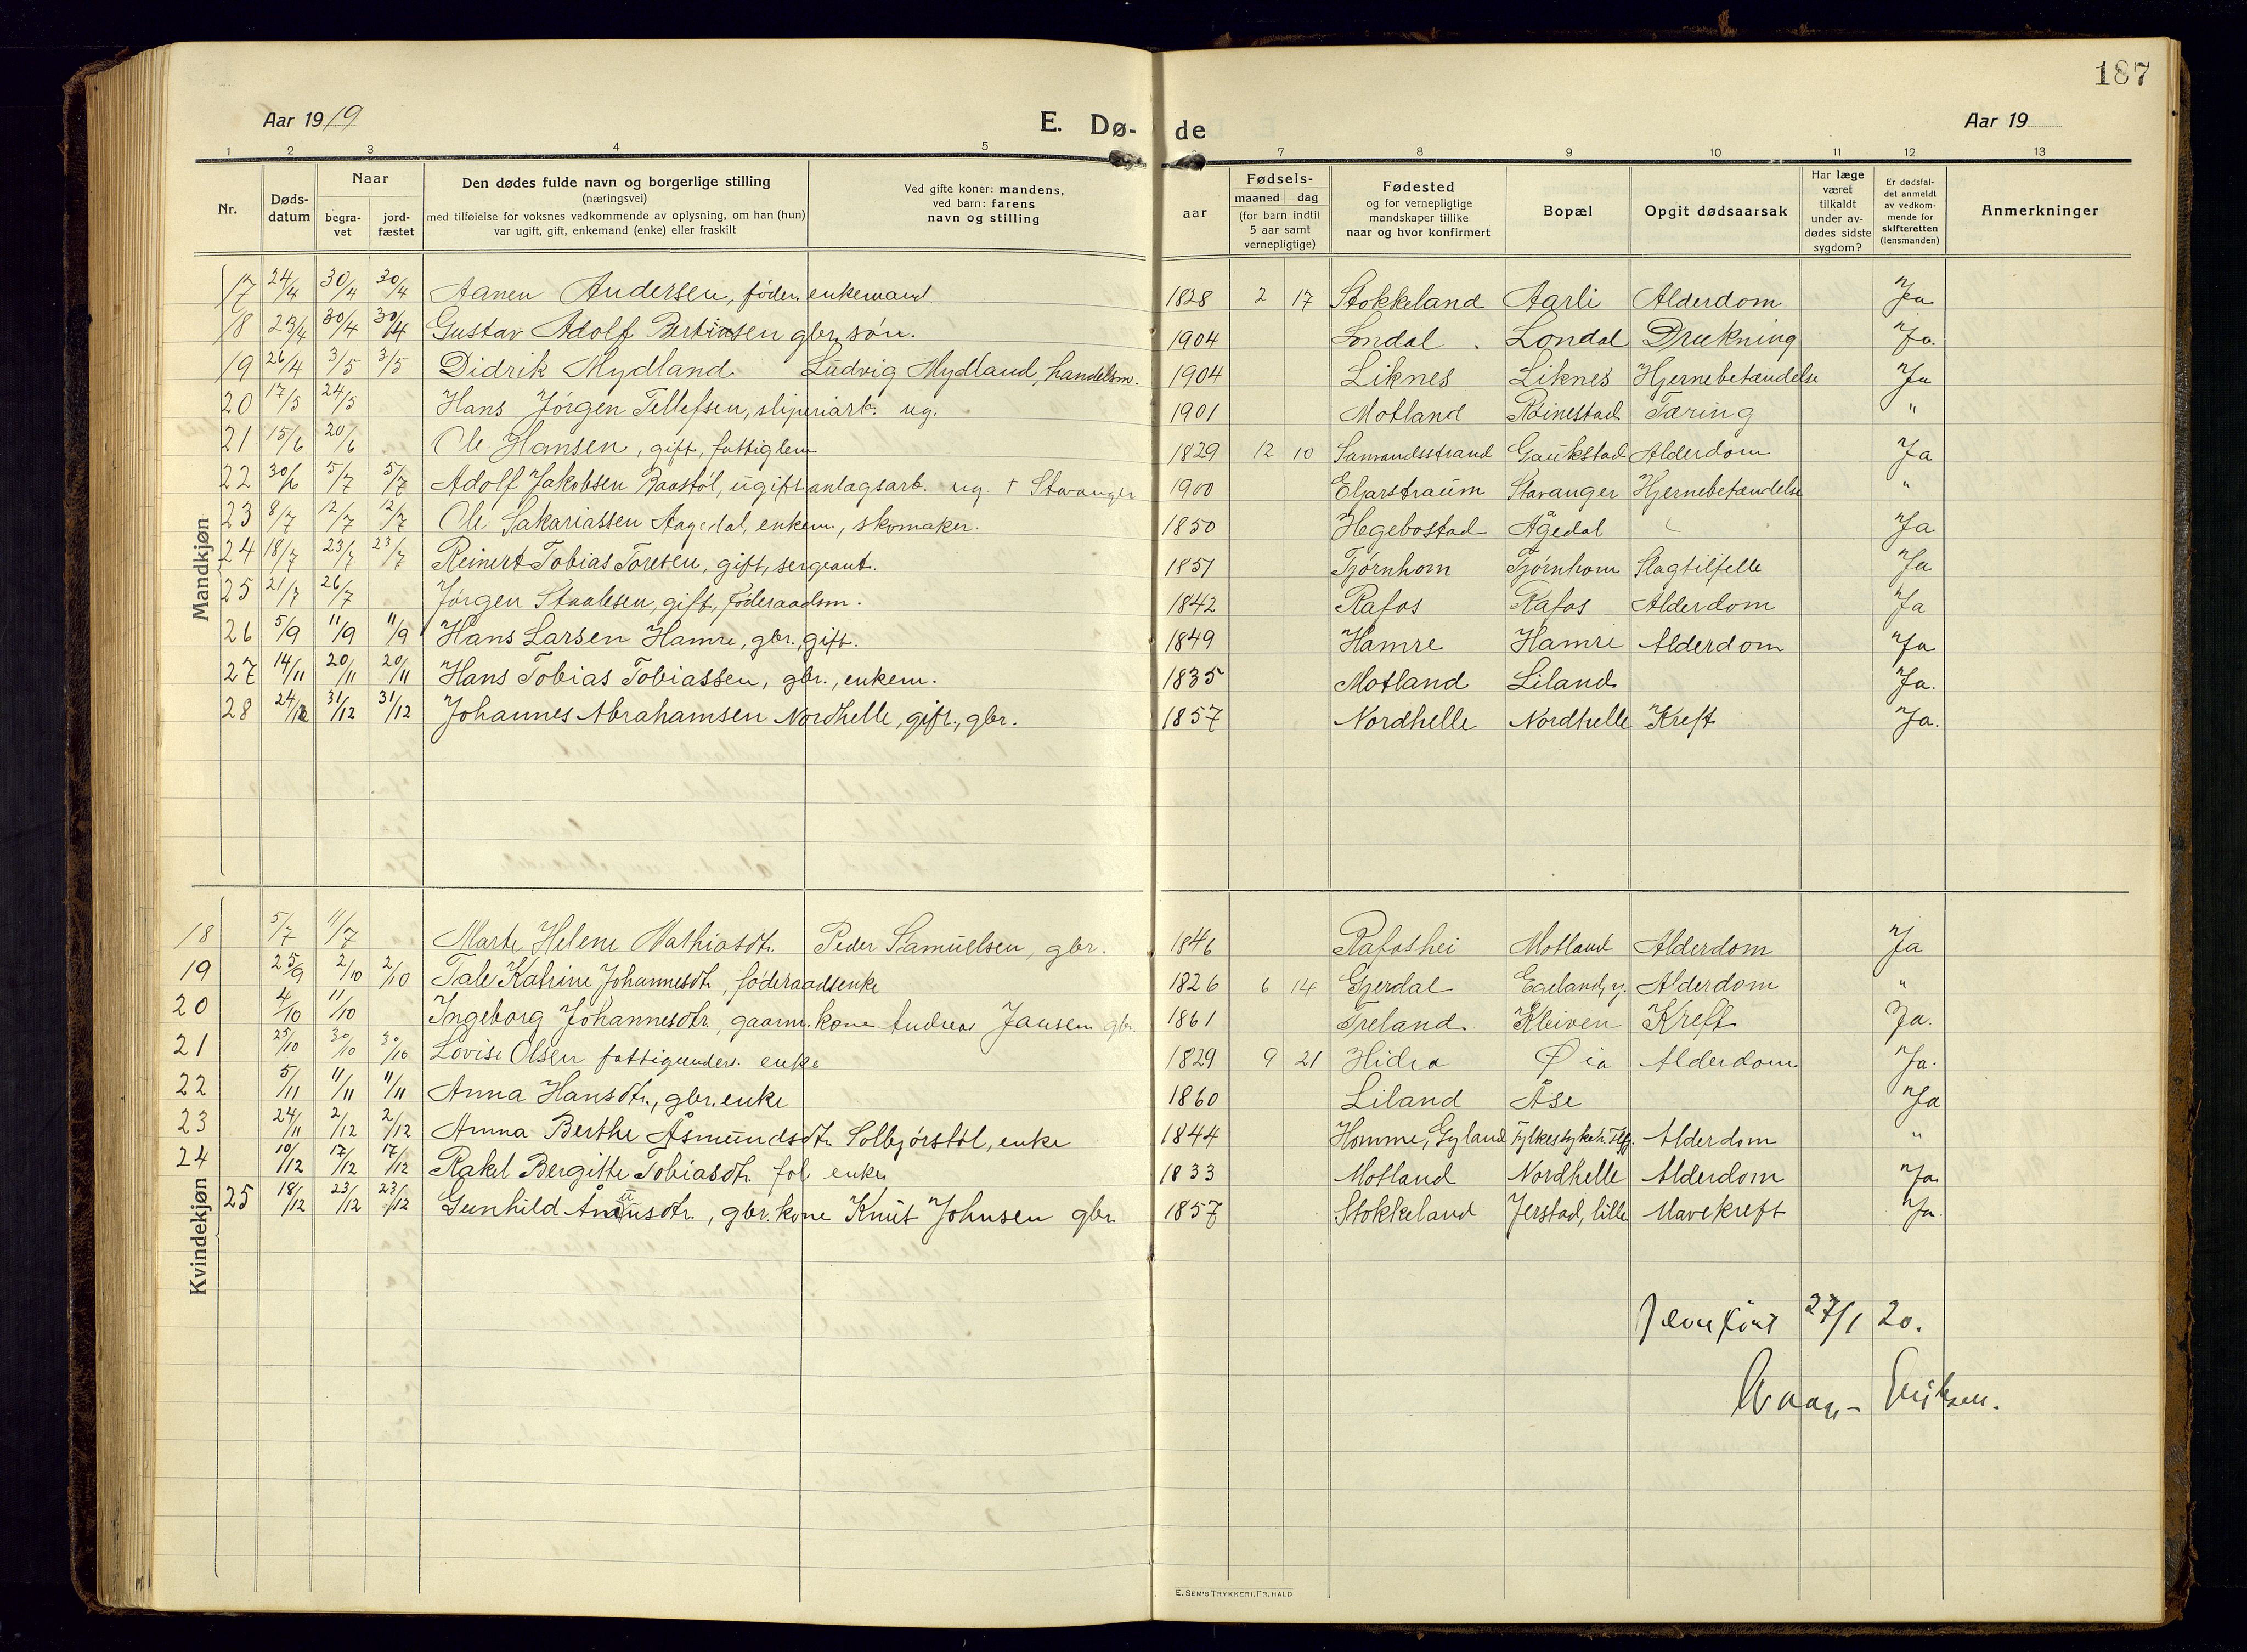 187
Aar 1919
E. Dø-
de
Aar 19
1 2 3 4 5 7 8 9 10 11 12 13
Nr.
Døds-
datum
Naar
begra-
vet
jord-
fæstet
Den dødes fulde navn og borgerlige stilling
(næringsvei)
med tilføielse for voksnes vedkommende av oplysning, om han (hun)
var ugift, gift, enkemand (enke) eller fraskilt
Ved gifte koner: mandens,
ved barn: farens
navn og stilling
aar
Fødsels-
maaned dag
(for barn indtil
5 aar samt
vernepligtige)
Fødested
og for vernepligtige
mandskaper tillike
naar og hvor konfirmert
Bopæl
Opgit dødsaarsak
Har læge
været
tilkaldt
under av-
dødes sidste
sygdom?
Er dødsfal-
det anmeldt
av vedkom-
mende for
skifteretten
(lensmanden)
Anmerkninger
Mandkjøn
17 24/4 30/4 30/4 Aanen Andersen, føder. enkemand. 1828 2 17 Stokkeland Aarli Alderdom Ja
18 23/4 30/4 30/4 Gustav Adolf Bertinsen gbr. søn. 1904 Londal Londal Drukning Ja.
19 26/4 3/5 3/5 Didrik Mydland Ludvig Mydland, handelsm. 1904 Liknes Liknes Hjernebetændelse Ja
20 17/5 24/5 Hans Jørgen Tellefsen, sliperiarb. ug. 1901 Motland Røinestad Tæring "
21 15/6 20/6 Ole Hansen, gift, fattiglem 1829 12 10 Gaukstad Alderdom Ja
22 30/6 5/7 5/7 Adolf Jakobsen Raastøl, ugift anlægsarb. ug. † Stavanger 1900 Eljarstraum Stavanger Hjernebetændelse "
23 8/7 12/7 12/7 Ole Sakariassen Aagedal, enkem., skomaker. 1850 Hegebostad Ågedal Ja
24 18/7 23/7 23/7 Reinert Tobias Toresen, gift, sergeant. 1851 Tjørnhom Tjørnhom Slagtilfelle Ja
25 21/7 26/7 Jørgen Staalesen, gift, føderaadsm. 1842 Rafos Rafos Alderdom Ja
26 5/9 11/9 11/9 Hans Larsen Hamre, gbr., gift. 1849 Hamre Hamre Alderdom Ja
27 14/11 20/11 20/11 Hans Tobias Tobiassen, gbr., enkem. 1835 Motland Liland Ja.
28 24/12 31/12 31/12 Johannes Abrahamsen Nordhelle, gift., gbr. 1857 Nordhelle Nordhelle Kreft Ja.
Kvindekjøn
18 5/7 11/7 Marte Helene Mathiasdtr. Peder Samuelsen, gbr. 1846 Rafoshei Motland Alderdom Ja
19 25/9 2/10 2/10 Tale Katrine Johannesdtr, føderaadsenke 1826 6 14 Gjerdal Egeland, y. Alderdom "
20 4/10 11/10 Ingeborg Johannesdtr., gaarm. kone Andreas Jansen gbr. 1861 Treland Kleiven Kreft Ja.
21 25/10 30/10 30/10 Lovise Olsen fattigunders. enke 1829 9 21 Hidra Øia Alderdom Ja.
22 5/11 11/11 11/11 Anna Hansdtr., gbr. enke 1860 Liland Åse Ja
23 24/11 2/12 2/12 Anna Berthe Åsmundsdtr. Solbjørstøl, enke 1844 Homme, Gyland Fylkessykeh. Flfj. Alderdom "
24 10/12 17/12 17/12 Rakel Bergitte Tobiasdtr. fol. enke 1833 Motland Nordhelle Alderdom Ja
25 18/12 23/12 23/12 Gunhild Ånusdtr., gbr. kone Knut Johnsen gbr. 1857 Stokkeland Jerstad, lille Mavekreft Ja.
Jevnført 27/1 20.
Eriksen.
E. SEM'S TRYKKERI, FR.HALD